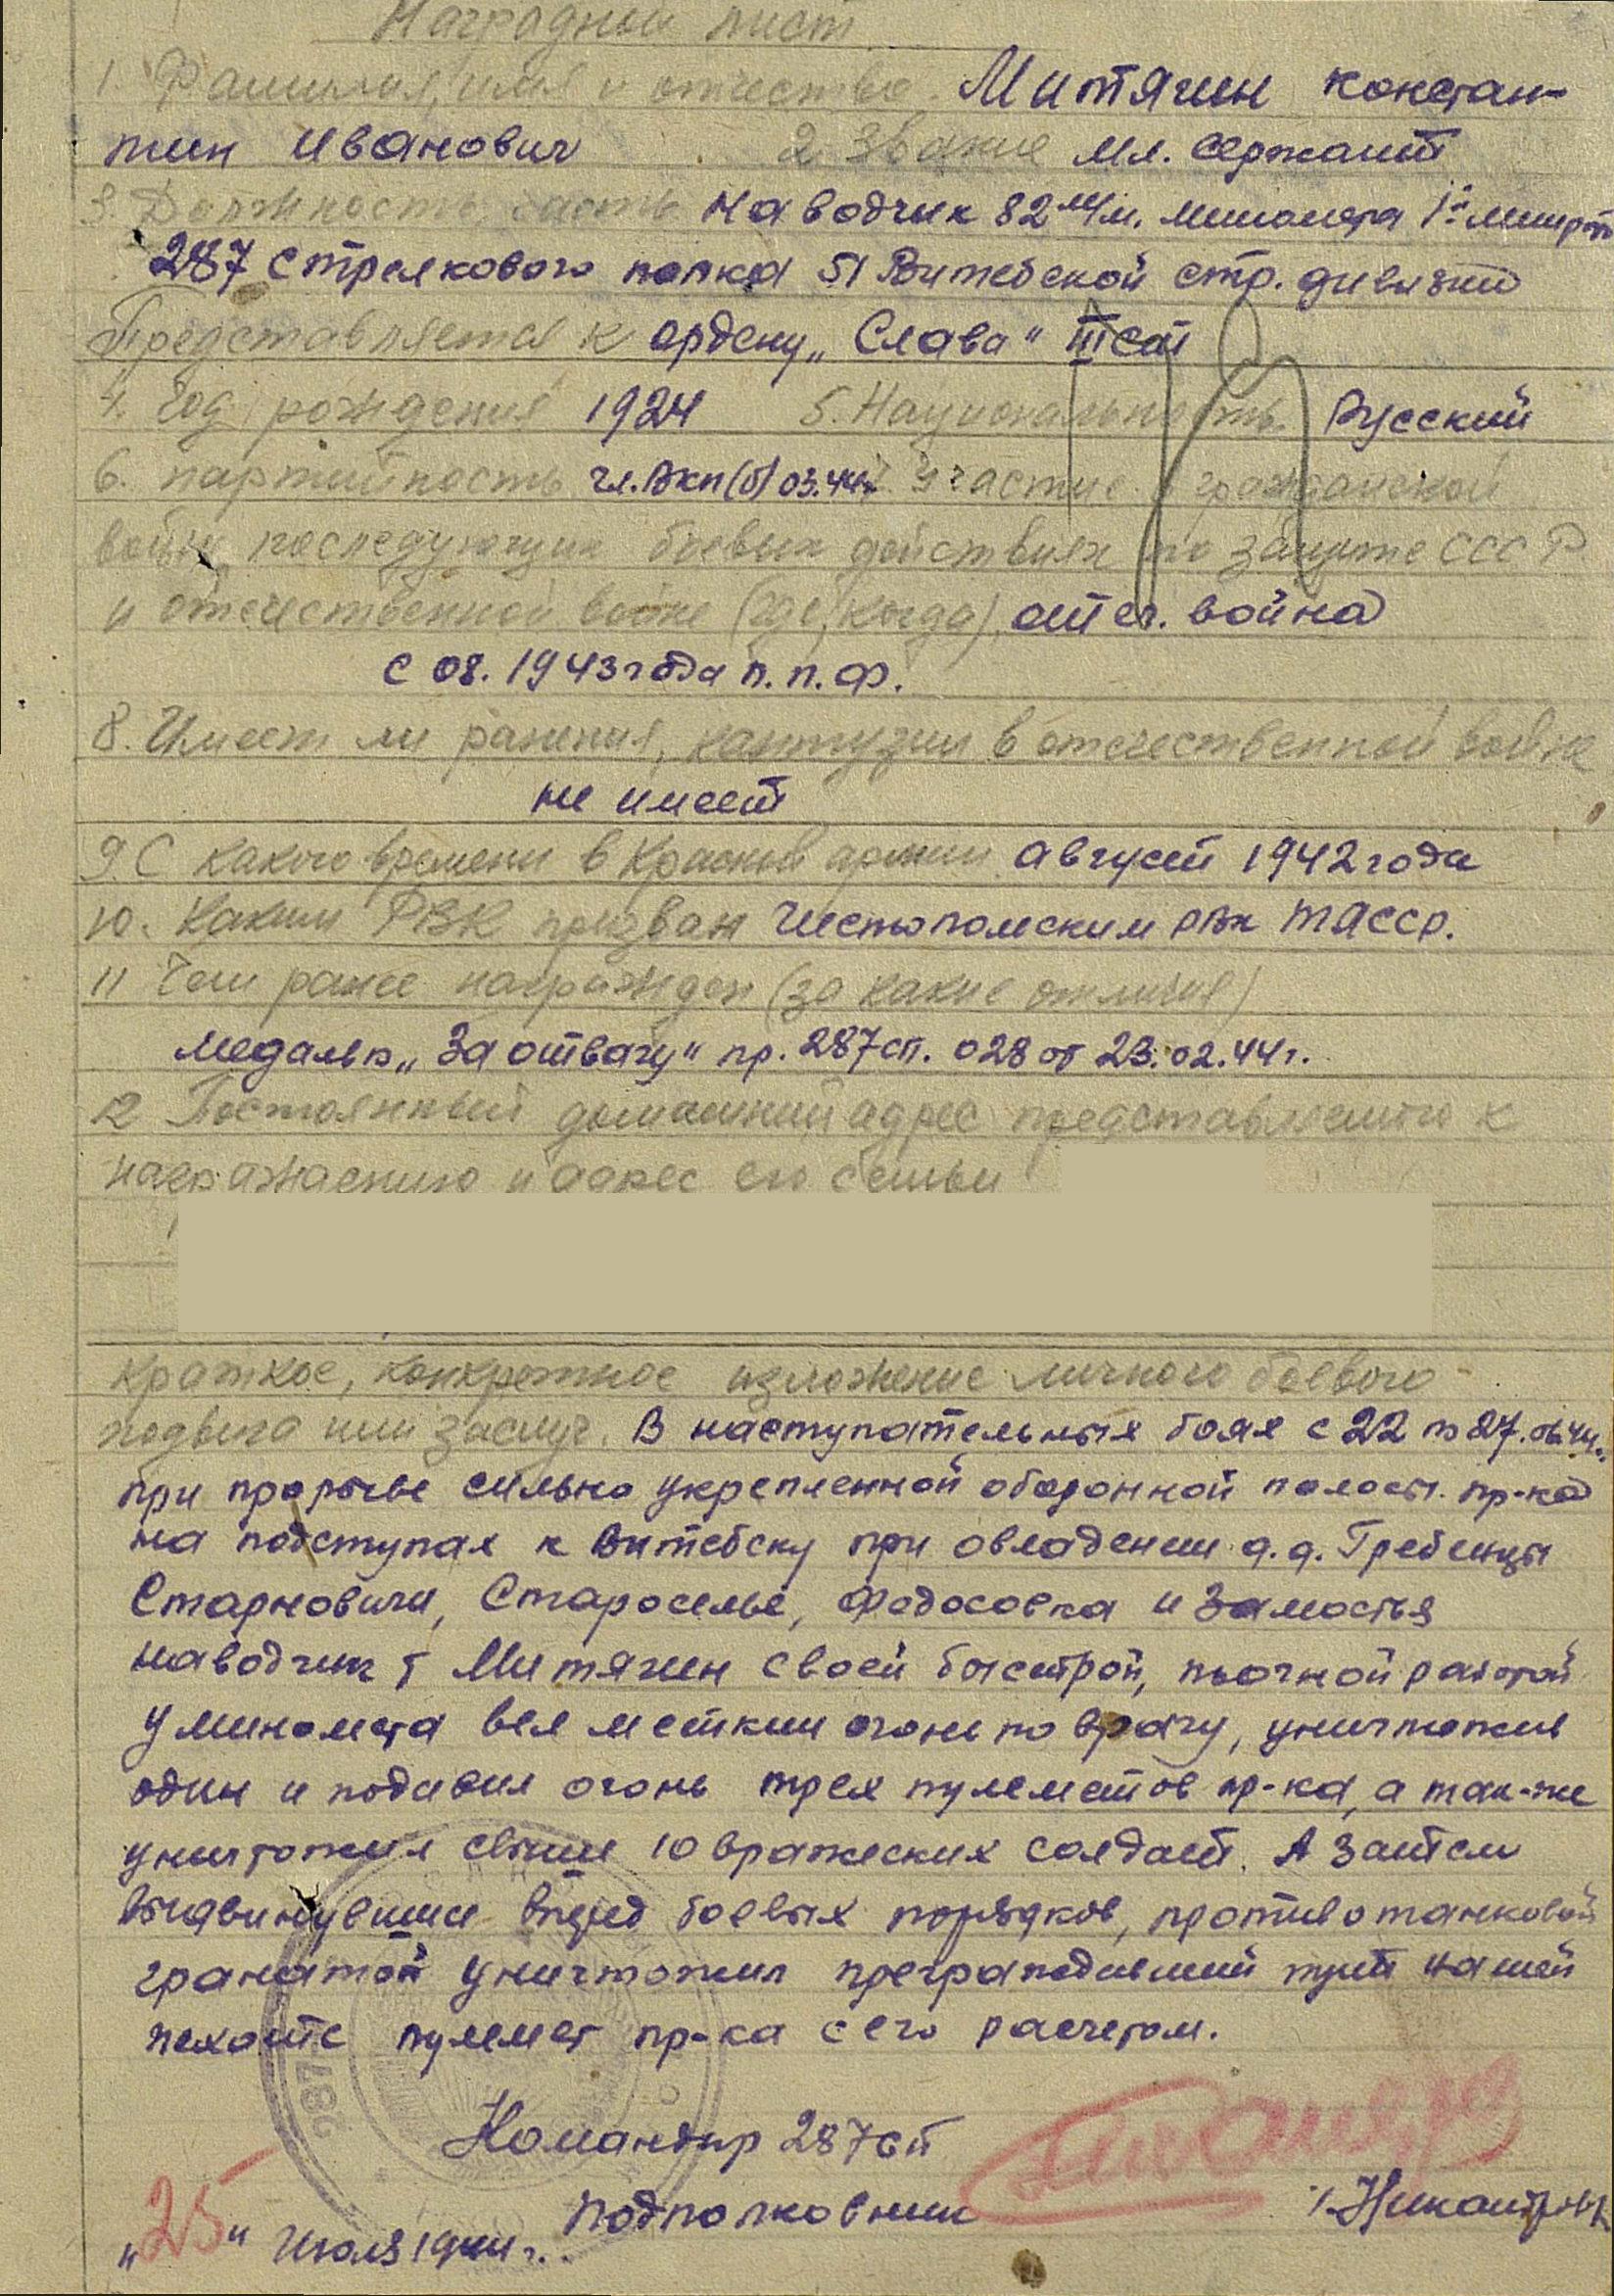 Наградной лист
1. Фамилия, имя и отчество Митягин Констан-
тин Иванович 2 Звание мл. сержант
3. Должность часть Наводчик 82 м/м. миномета 1й минроты
287 стрелкового полка 51 Витебской стр. дивизии
Представляется к ордену „Слава" III ст
4. Год рождения 1924 5. Национальность Русский
6. партийность чл. ВКП(б) 03.44г 7. Участие в гражданской
войне последующих боевых действиях по защите СССР
и отечественной войне (где, когда) отеч. война
с 08. 1943 года п. п. ф.
8. Имеет ли ранения, контузии в отечественной войне
не имеет
9. С какого времени в Красной армии август 1942 года
10. Каким РВК призван Чистопольским РВК ТАССР.
11 Чем ранее награжден (за какие отличия)
медалью „За отвагу" пр. 287 сп. 028 от 23.02.44 г.
12 Постоянный домашний адрес представляемого к
награждению и адрес его семьи
Краткое, конкретное изложение личного боевого
подвига или заслуг. В наступательных боях с 22 по 27.06.44г.
при прорыве сильно укрепленной оборонной полосы пр-ка
на подступах к Витебску при овладении д.д. Гребенцы
Старновичи, Староселье, Федосовка и Замостья
наводчик т Митягин своей быстрой, точной работой
у миномета вел меткий огонь по врагу, уничтожил
один и подавил огонь трех пулеметов пр-ка, а так-же
уничтожил свыше 10 вражеских солдат. А затем
выдвинувшись вперед боевых порядков, противотанковой
гранатой уничтожил преграподивший путь нашей
пехоте пулемет пр-ка с его расчетом.
Командир 287 сп
подполковник
„25" Июля 1944 г.
287